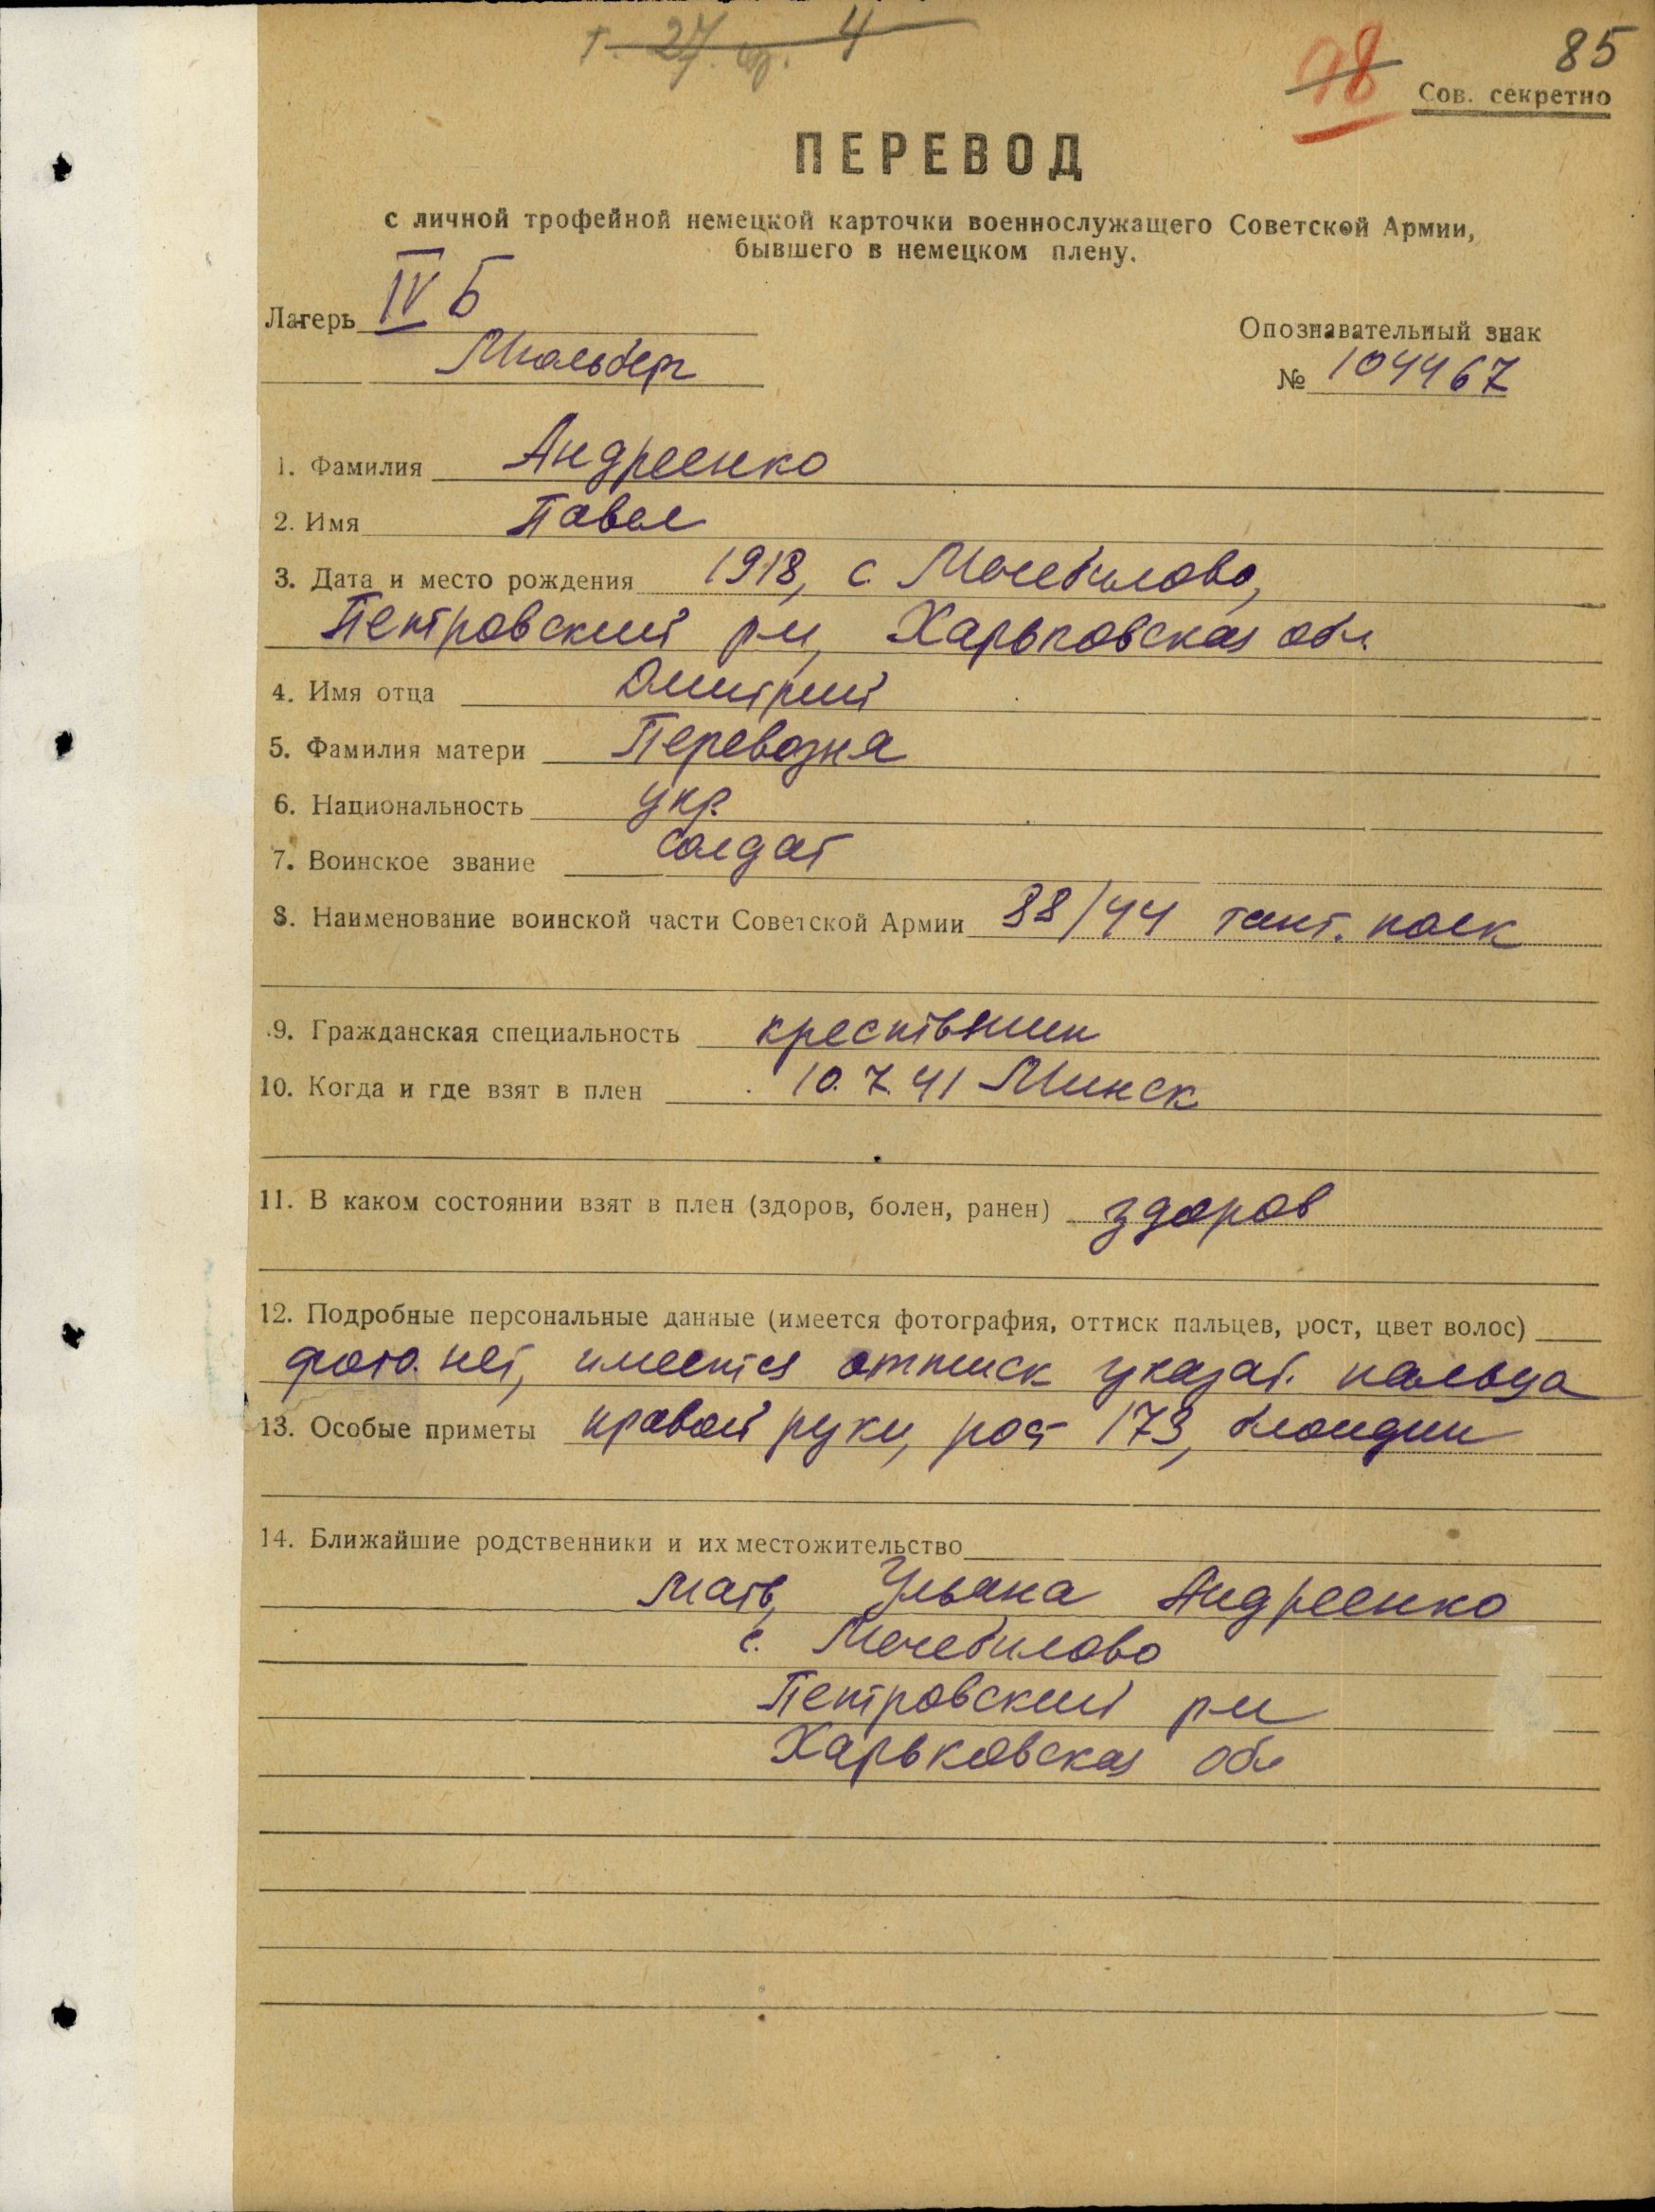 т. 27. стр. 4
98 85
Сов. секретно
ПЕРЕВОД
с личной трофейной немецкой карточки военнослужащего Советской Армии,
бывшего в немецком плену.
Лагерь IV Б
Мюльберг
Опознавательный знак
№ 104467
1. Фамилия Андреенко
2. Имя Павел
3. Дата и место рождения 1918, с. Мечебилово,
Петровский р-н, Харьковская обл.
4. Имя отца Дмитрий
5. Фамилия матери Перевозня
6. Национальность укр.
7. Воинское звание солдат
8. Наименование воинской части Советской Армии 88/44 танк. полк
9. Гражданская специальность крестьянин
10. Когда и где взят в плен 10.7.41 Минск
11. В каком состоянии взят в плен (здоров, болен, ранен) здоров
12. Подробные персональные данные (имеется фотография, оттиск пальцев, рост, цвет волос)
фото. нет, имеется оттиск указат. пальца
13. Особые приметы правой руки, рост 173, блондин
14. Ближайшие родственники и их местожительство
Мать, Ульяна Андреенко
с. Мечебилово
Петровский р-н
Харьковская обл